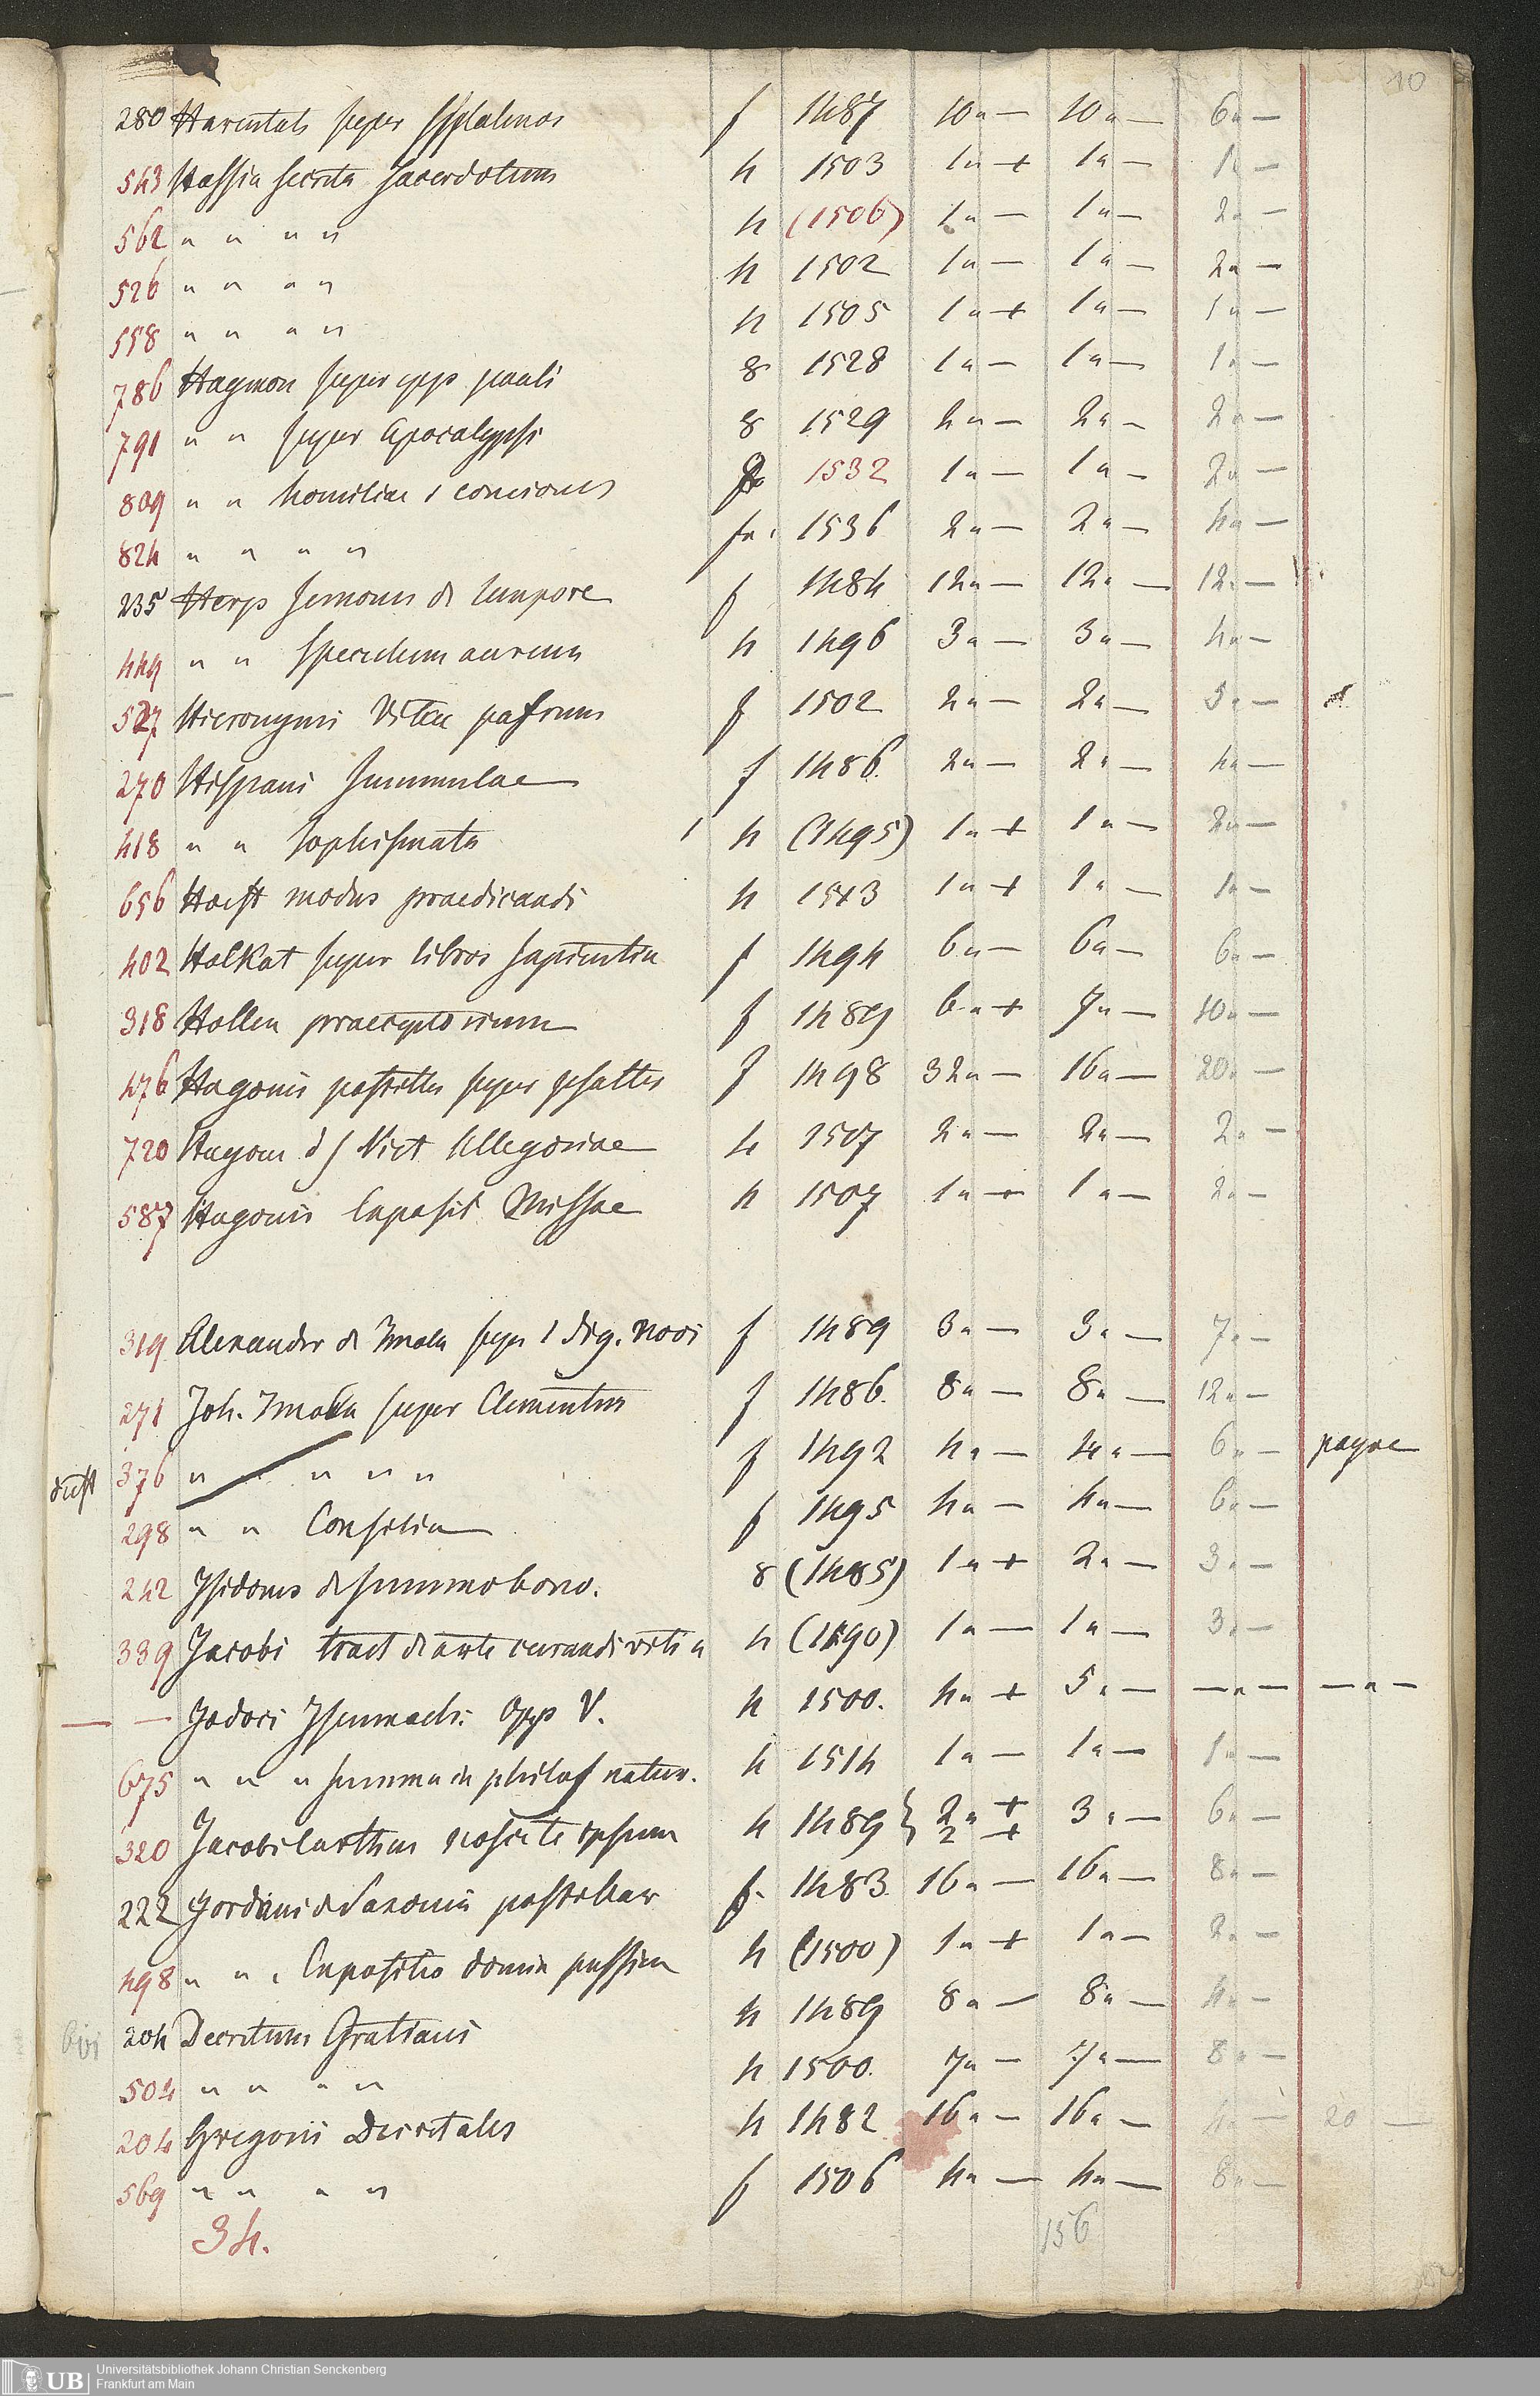 10
280 Harentals super Psalmos f 1487 10 „ — 10 „ — 6 „ —
543 Hassia secreta Sacerdotum 4 1503 1 „ + 1 „ — 1 „ —
562 „ „ „ „ 4 (1506) 1 „ — 1 „ — 2 „ —
526 „ „ „ „ 4 1502 1 „ — 1 „ — 2 „ —
558 „ „ „ „ 4 1505 1 „ + 1 „ — 1 „ —
786 Haymon super epp pauli 8 1528 1 „ — 1 „ — 1 „ —
791 „ „ super Apocalypsi 8 1529 2 „ — 2 „ — 2 „ —
809 „ „ homiliae s conciones 1532 1 „ — 1 „ — 2 „ —
824 „ „ „ „ 1536 2 „ — 2 „ — 4 „ —
235 Herp sermones de tempore f 1484 12 „ — 12 „ — 12 „ —
449 „ „ speculum aureum 4 1496 3 „ — 3 „ — 4 „ —
527 Hieronymi Vitae patrum f 1502 2 „ — 2 „ — 5 „ —
270 Hispani Summulae f 1486. 2 „ — 2 „ — 4 „ —
418 „ „ sophismata 1 4 (1495) 1 „ + 1 „ — 2 „ —
656 Hoest modus praedicandi 4 1513 1 „ + 1 „ — 1 „ —
402 Holkat super libros sapientia f 1494 6 „ — 6 „ — 6 „ —
318 Hollen praeceptorium f 1489 6 „ + 7 „ — 10 „ —
476 Hugonis postilla super psalter f 1498 32 „ — 16 „ — 20 „ —
720 Hugon d S Vict Allegoriae 4 1507 2 „ — 2 „ — 2 „ —
587 Hugonis Exposit Missae 4 1507 1 „ + 1 „ — 2 „ —
319 Alexander de Imola super 1 dig. novi f 1489 3 „ — 3 „ — 7 „ —
271 Joh. Imola super Clementin f 1486. 8 „ — 8 „ — 12 „ —
376 „ „ „ „ „ f 1492 4 „ — 4 „ — 6 „ — payne
298 „ „ Consilia f 1495 4 „ — 4 „ — 6 „ —
242 Isidorus de summo bono. 8 (1485) 1 „ + 2 „ — 3 „ —
339 Jacobi tract de arte curandi vitia 4 (1490) 1 „ — 1 „ — 3 „ —
— — Jodoci Isennach: Opp V. 4 1500. 4 „ + 5 „ — — „ — — „ —
675 „ „ „ summa in philos natur. 4 1514 1 „ — 1 „ — 1 „ —
320 Jacobi Carthus nosce te ipsum 4 1489 } 2 „ + 3 „ — 6 „ —
2 +
222 Jordani de Saxonia postillae f. 1483. 16 „ — 16 „ — 8 „ —
498 „ „ „ Expositio domin passion 4 (1500) 1 „ + 1 „ — 2 „ —
204 Decretum Gratiani 4 1489 8 „ — 8 „ — 4 „ —
504 „ „ „ „ 4 1500. 7 „ — 7 „ — 8 „ —
204 Gregorii Decretales 4 1482 16 „ — 16 „ — 4 „ — 20 —
569 „ „ „ „ f 1506 4 „ — 4 „ — 8 „ —
34. 156
UB Universitätsbibliothek Johann Christian Senckenberg
Frankfurt am Main